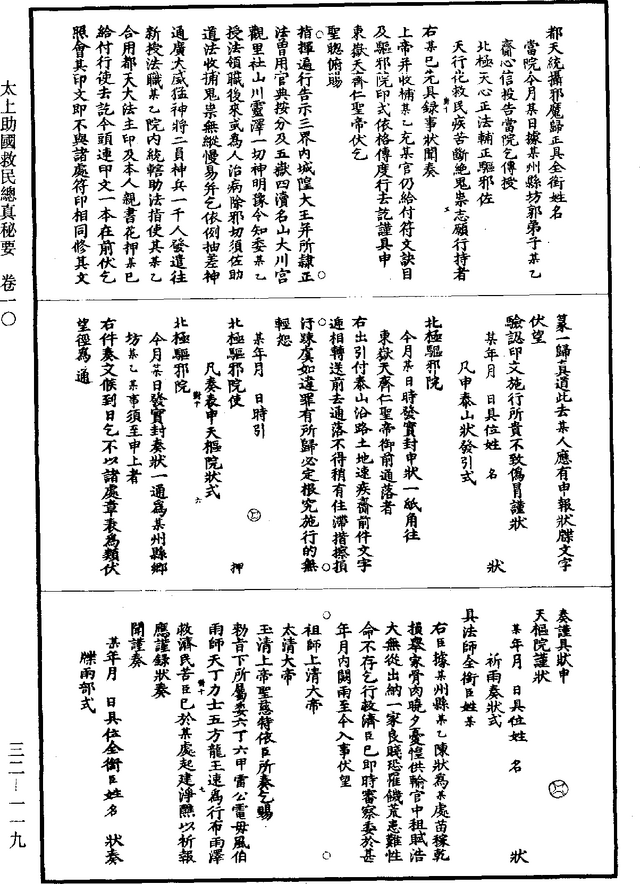 太上助國救民總真秘要　卷一〇
三二—一一九
都天統攝邪魔歸正具全銜姓名
當院今月某日據某州縣坊郭弟子某乙
齋心信投告當院乞傳授
北極天心正法輔正驅邪佐
天行化救民疾苦斷絕鬼祟志願行持者
右某已先具録事狀聞奏
上帝并收補某乙充某官仍給付符文訣目
及驅邪院印式依格傳度行去訖謹具申
東嶽天齊仁聖帝伏乞
聖聰俯賜
指揮遍行告示三界内城隍大王并所隷正
法曹用官典按分及五嶽四瀆名山大川宫
觀里社山川靈澤一切神明豫令知委某乙
授法領職後來或爲人治病除邪切須佐助
道法收捕鬼祟無縱慢易并乞依例抽差神
通廣大威猛神將二員神兵一千人發遣往
新授法職某乙院内統轄助法指使其某乙
合用都天大法主印及本人親書花押某已
給付行使去訖今頭連印文一本在前伏乞
照會其印文即不與諸處符印相同修其文
篆一歸真道此去某人應有申報狀牒文字
伏望
驗認印文施行所貴不致僞冒謹狀
某年月　日具位姓　名　狀
凡申泰山狀發引式
北極驅邪院
今月某日時發實封申狀一紙角往
東嶽天齊仁聖帝御前通落者
右出引付泰山沿路土地速疾齎前件文字
遞相轉送前去通落不得稍有住滯揩擦損
汙踈虞如違罪有所歸必定根究施行的無
輕恕
某年月　日時引
北極驅邪院使　押
凡奏表申天樞院狀式
北極驅邪院
今月某日發實封奏狀一通爲某州縣鄉
坊某乙某事須至申上者
右件奏文候到日乞不以諸處章表爲類伏
望徑爲通
奏謹具狀申
天樞院謹狀
某年月　日具位姓　名　狀
祈雨奏狀式
具法師全銜臣姓某
右臣據某州縣某乙陳狀爲某處苗稼乾
損舉家骨肉曉夕憂惶供輸官中租賦浩
大無從出納一家良賤恐罹饑荒患難性
命不存乞行救濟臣已即時審察委於甚
年月内闕雨至今入事伏望
祖師上清大帝
太清大帝
玉清上帝聖慈特依臣所奏乞賜
勑旨下所屬委六丁六甲雷公電母風伯
雨師天丁力士五方龍王速爲行布雨澤
救濟民苦臣已於某處起建淨醮以祈報
應謹録狀奏
聞謹奏
某年月　日具位全銜臣姓名　狀奏
牒雨部式